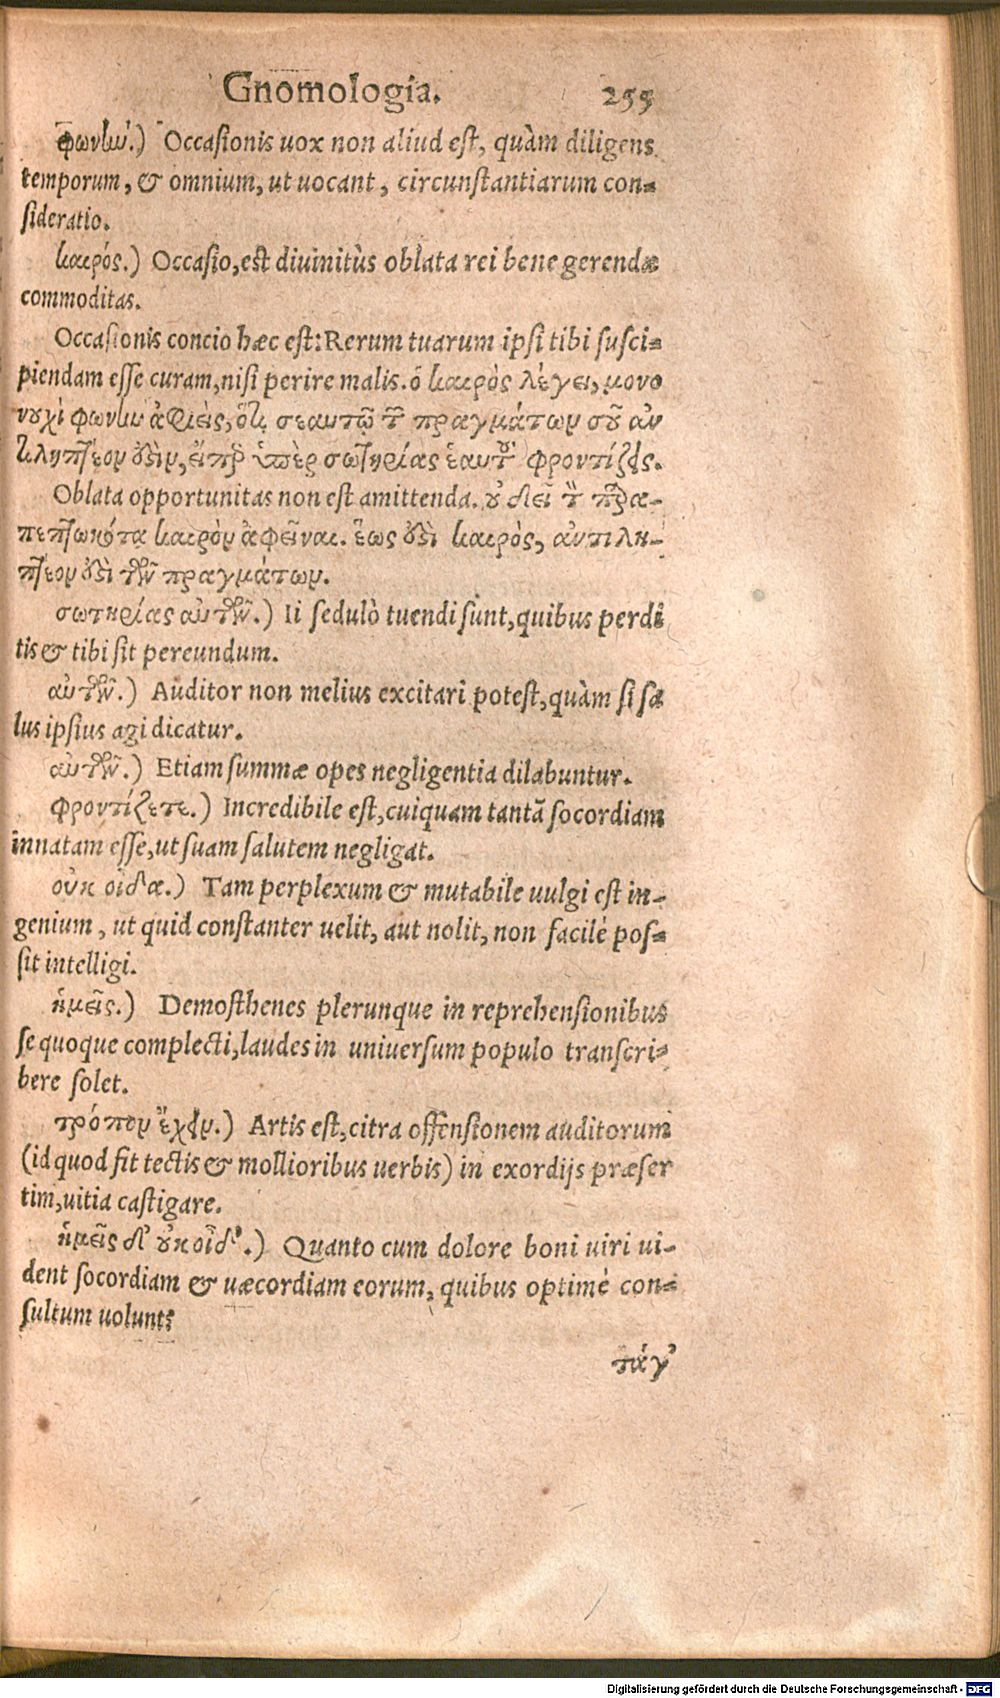 Gnomologia. 255
φωνὴν.) Occasionis uox non aliud est, quàm diligens
temporum, & omnium, ut uocant, circunstantiarum con-
sideratio.
καιρός.) Occasio, est diuinitùs oblata rei bene gerendæ
commoditas.
Occasionis concio hæc est: Rerum tuarum ipsi tibi susci-
piendam esse curam, nisi perire malis. ὁ καιρὸς λέγει, μονο
νουχὶ φωνὴν ἀφιεὶς, ὅτι σεαυτῷ τῶν πραγμάτων σοῦ ἀν
τιληπτέον ὅστιν, εἴπερ ὑπὲρ σωτηρίας ἑαυτοῦ φροντίζεις.
Oblata opportunitas non est amittenda. οὐ δεῖ τὸν παρα-
πεπτωκότα καιρὸν ἀφεῖναι. ἕως ὅστι καιρὸς, ἀντιλη-
πτέον ὅστὶ τῶν πραγμάτων.
σωτηρίας αὐτῶν.) Ii sedulò tuendi sunt, quibus perdi
tis & tibi sit pereundum.
αὐτῶν.) Auditor non melius excitari potest, quàm si sa
lus ipsius agi dicatur.
αὐτῶν.) Etiam summæ opes negligentia dilabuntur.
φροντίζετε.) Incredibile est, cuiquam tantā socordiam
innatam esse, ut suam salutem negligat.
οὐκ οἶδα.) Tam perplexum & mutabile uulgi est in-
genium, ut quid constanter uelit, aut nolit, non facilè pos-
sit intelligi.
ἡμεῖς.) Demosthenes plerunque in reprehensionibus
se quoque complecti, laudes in uniuersum populo transcri-
bere solet.
τρόπον ἔχειν.) Artis est, citra offensionem auditorum
(id quod fit tectis & mollioribus uerbis) in exordijs præser
tim, uitia castigare.
ἡμεῖς δ' οὐκ οἶδ'.) Quanto cum dolore boni uiri ui-
dent socordiam & uæcordiam eorum, quibus optimè con-
sultum uolunt?
πάγ'
Digitalisierung gefördert durch die Deutsche Forschungsgemeinschaft - DFG